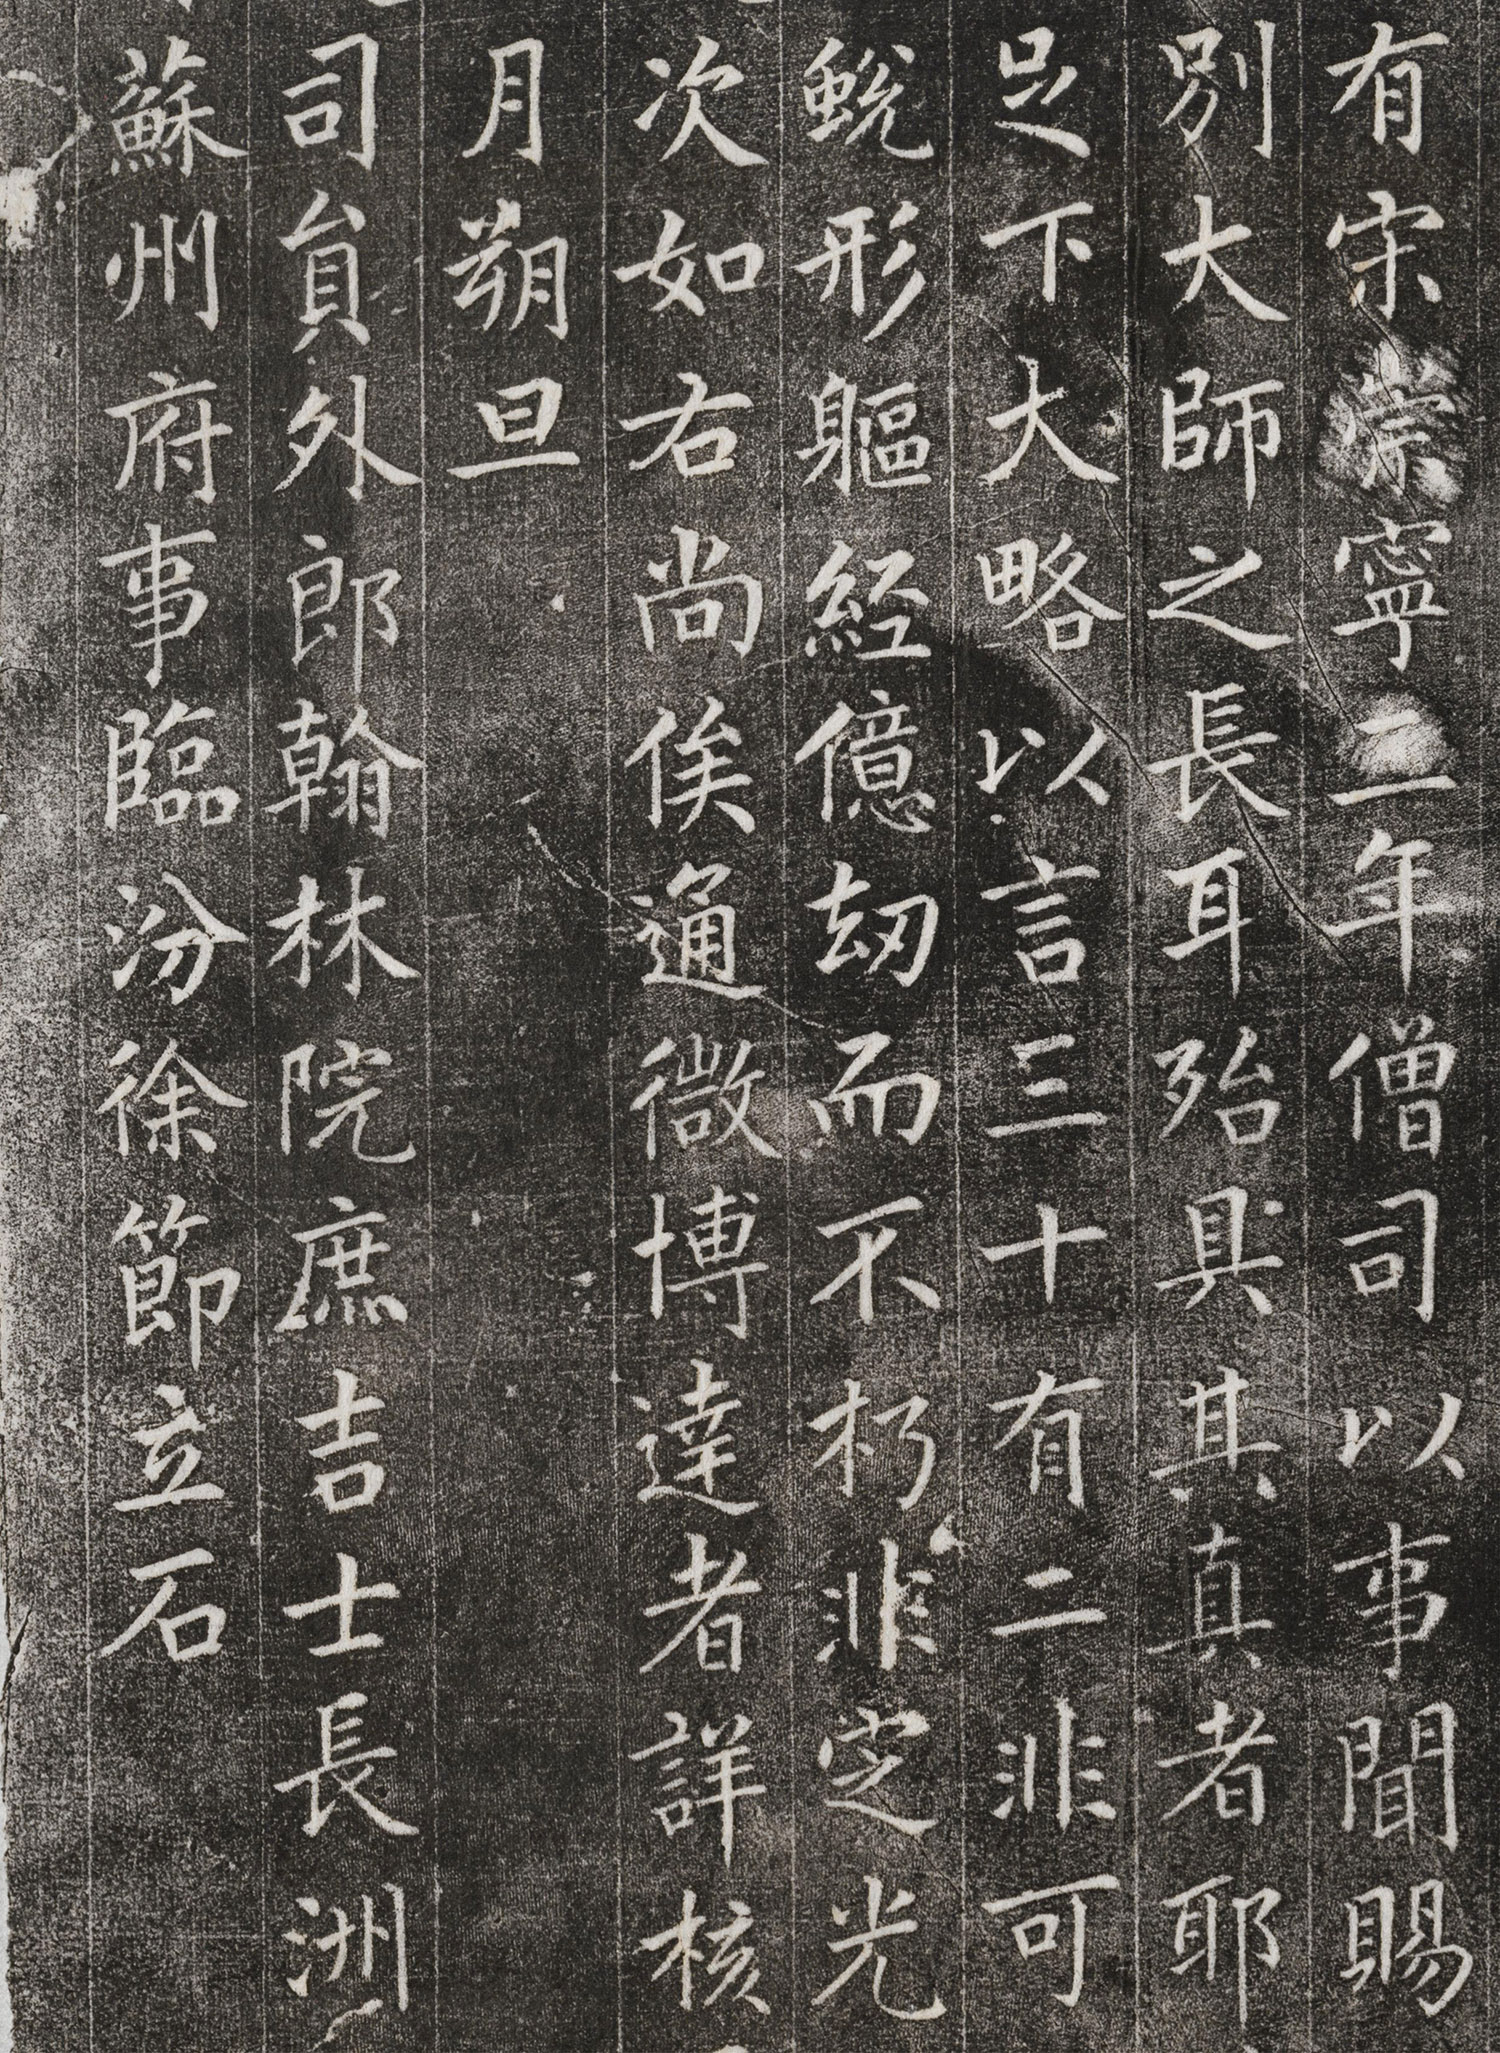 有宋崇寧二年僧司以事聞賜
別大師之長耳殆具其真者耶
足下大略以言三十有二非可
蛻形軀經億劫而不朽非定光
次如右尚俟通微博達者詳核
月朔旦
司員外郎翰林院庶吉士長洲
蘇州府事臨汾徐節立石